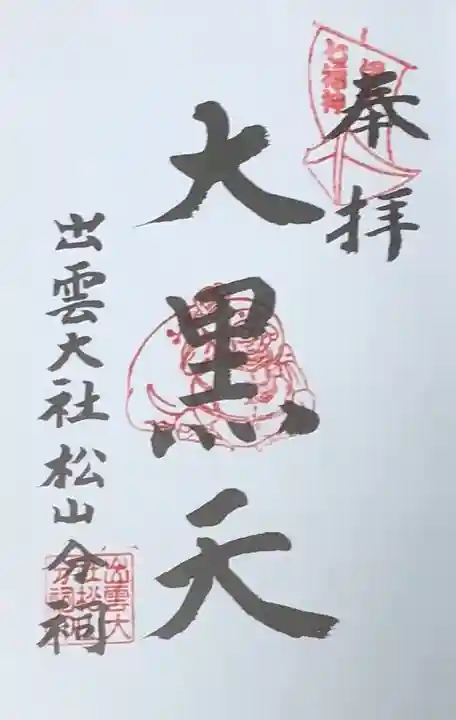 奉拝
七福神
大黒天
出雲大社松山分祠
出雲大
社松山
分祠